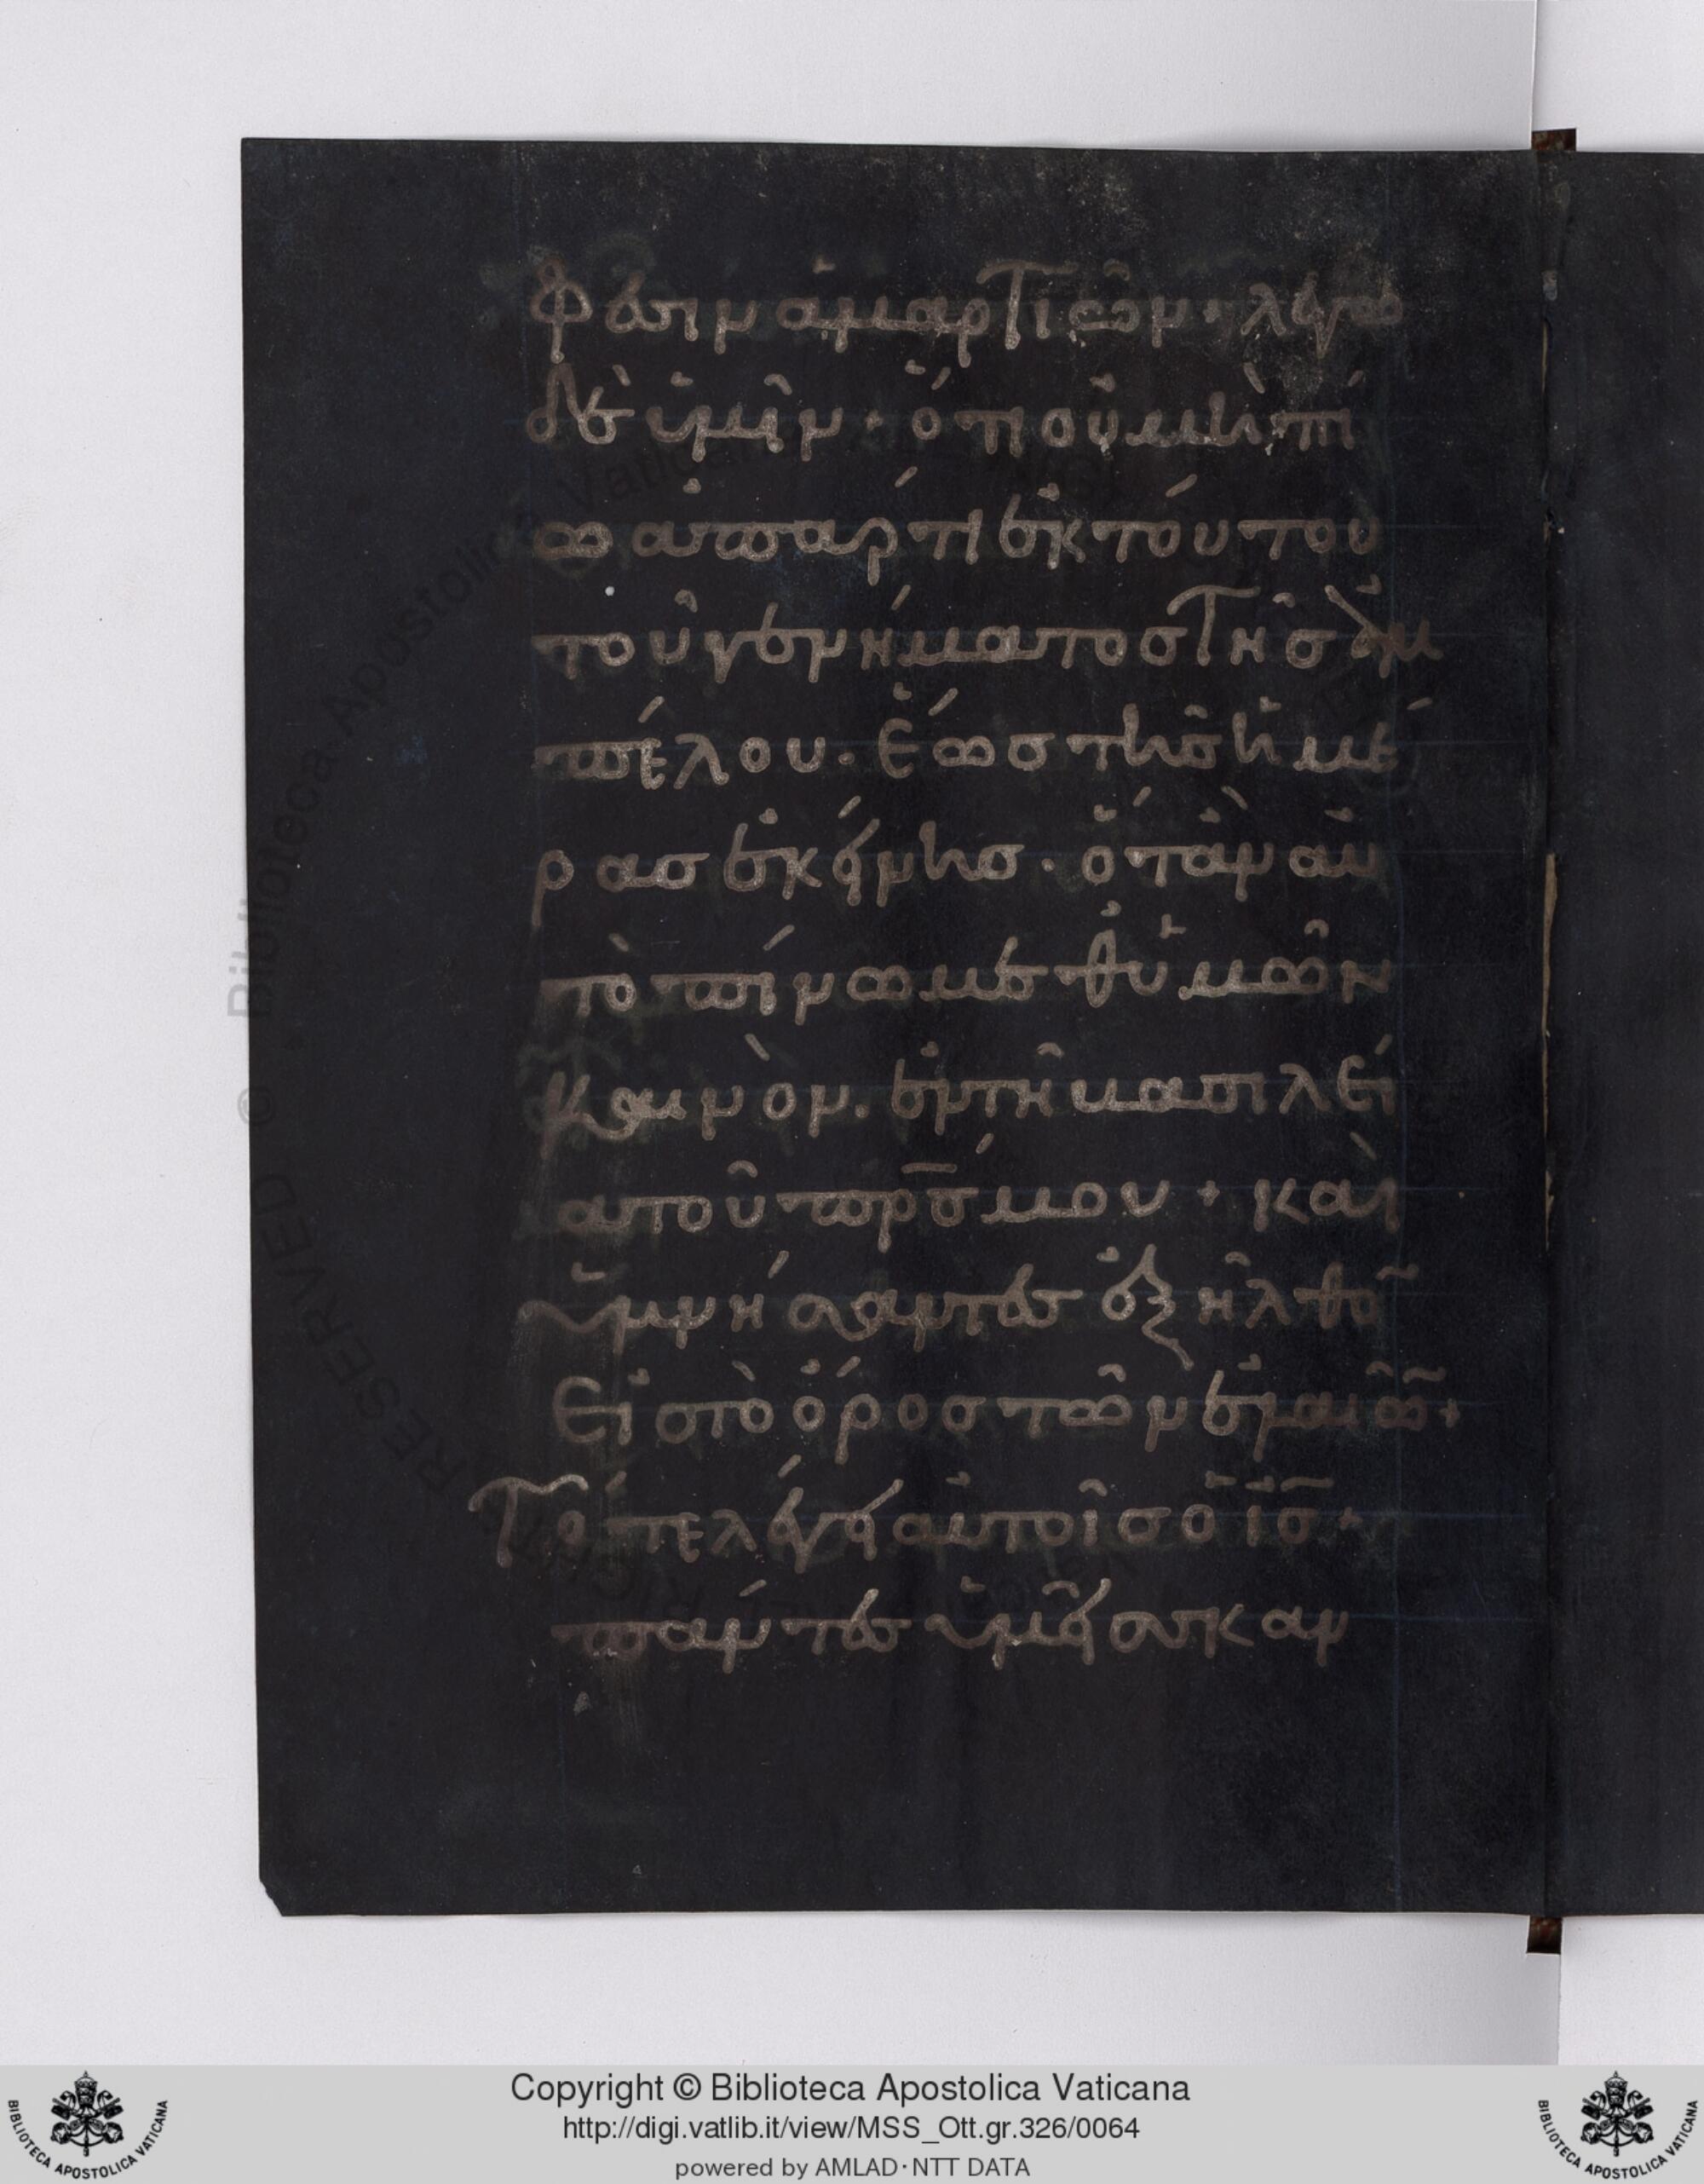 φεσιν ἁμαρτιῶν· λέγω
δὲ ὑμῖν· ὅτι οὐ μὴ πί
ω ἀπάρτι ἐκ τούτου
τοῦ γενήματος τῆς ἀμ
πέλου. ἕως τῆς ἡμέ
ρας ἐκείνης. ὅταν αὐ
τὸ πίνω μεθ᾽ ὑμῶν
καινὸν. ἐν τῆ βασιλεί
α τοῦ πρ̅ς μου + καὶ
ὑμνήσαντες ἐξῆλθο̅
εἰς τὸ ὄρος τῶν ἐλαιῶ̅ +
Τότε λέγει αὐτοῖς ὁ ι̅ς̅ +
πάντες ὑμεῖς σκαν
Biblioteca Apostolica Vaticana
©
RESERVED
RIGHTS
Copyright © Biblioteca Apostolica Vaticana
http://digi.vatlib.it/view/MSS_Ott.gr.326/0064
powered by AMLAD·NTT DATA
BIBLIOTECA APOSTOLICA VATICANA
BIBLIOTECA APOSTOLICA VATICANA